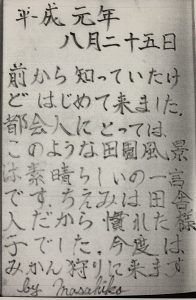 平成元年
八月二十五日
前から知っていたけ
どはじめて来ました。
都会人にとっては、
このような田園風景
は素晴らしいの一言
です。ちえみは田舎
人だから慣れた様
子でした。今度は
みかん狩りに来ます
by Masahiko